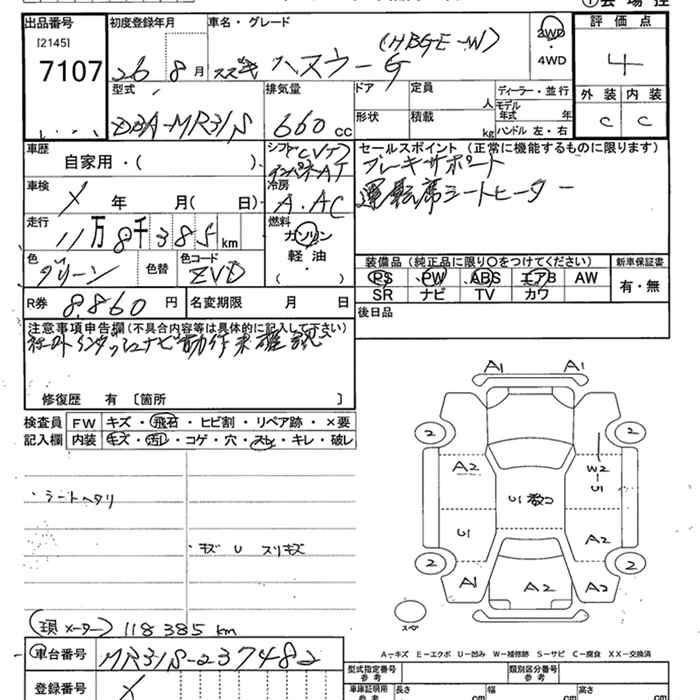 会場控
出品番号
[2145]
7107
初度登録年月
26 8 月
車名・グレード
スズキ ハスラー G
(HBGE-W)
2WD
・
4WD
評価点
4
外装 内装
C C
型式
DBA-MR31S
排気量
660 CC
ドア
形状
定員
人
積載
kg
ディーラー・並行
モデル
年式 年
ハンドル 左・右
車歴
自家用・( )
シフト CVT
インパネAT
セールスポイント(正常に機能するものに限ります)
ブレーキサポート
運転席シートヒーター
車検
メ 年 月( 日)
冷房
A.AC
走行
11万8千385km
燃料
ガソリン
軽油
( )
色
グリーン
色替
色コード
ZVD
装備品(純正品に限り○をつけてください)
PS PW ABS エアB AW
SR ナビ TV カワ
新車保証書
有・無
R券 8,860 円
名変期限 月 日
後日品
注意事項申告欄(不具合内容等は具体的に記入して下さい)
社外インダッシュナビ動作未確認
修復歴 有〔箇所 〕
検査員
記入欄
FW キズ・飛石・ヒビ割・リペア跡・×要
内装 キズ・汚レ・コゲ・穴・スレ・キレ・破レ
・シートヘタリ
・キズ U スリキズ
(現メーター) 118385 km
車台番号 MR31S-237482
登録番号
A1 A1
2 2
A2 W2
U
U U数コ
A2
2 2
A1 A2 A2
スペア
A−キズ E−エクボ U−凹み W−補修跡 S−サビ C−腐食 XX−交換済
型式指定番号
参考
類別区分番号
参考
車庫証明用
参考
長さ cm
幅 cm
高さ cm